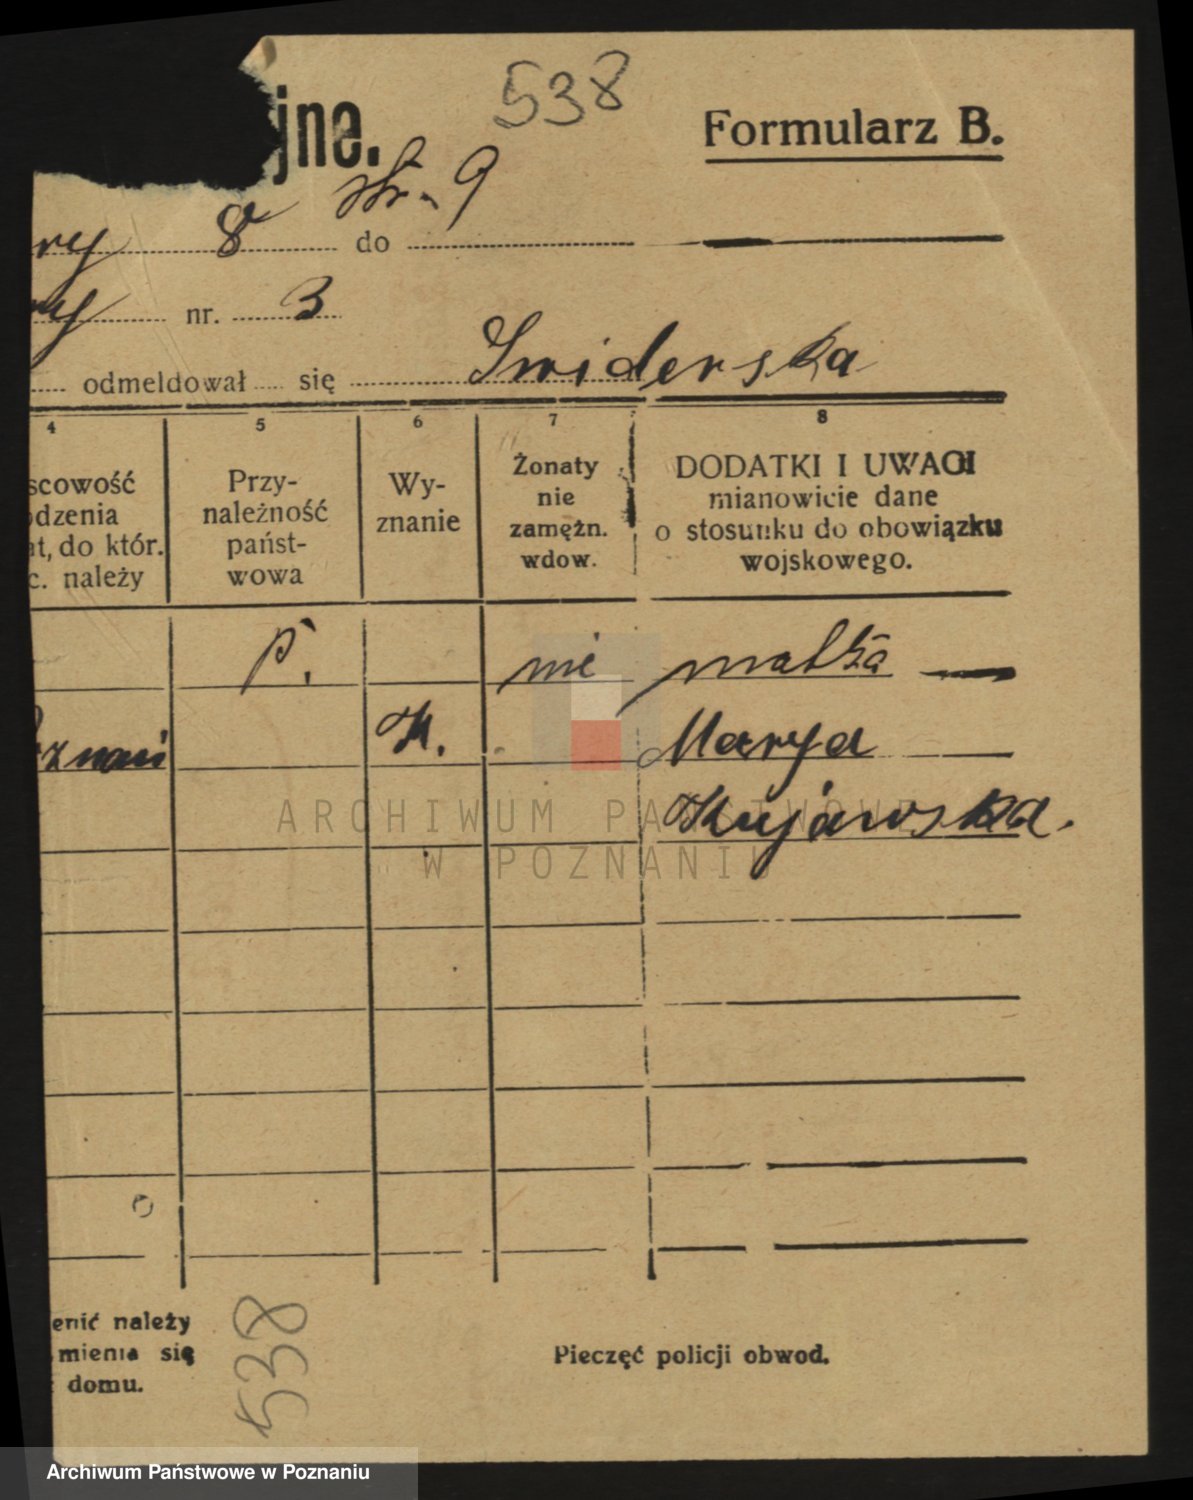 538
jne.
Formularz B.
str. 9
ry 8 do
ry nr. 3
odmeldował się Swiderska
4 5 6 7 8
scowość
odzenia
at, do któr.
c. należy
Przy-
należność
państ-
wowa
Wy-
znanie
Żonaty
nie
zamężn.
wdow.
DODATKI I UWAGI
mianowicie dane
o stosunku do obowiązku
wojskowego.
P. nie matka
znań K. Marya
Kujawska.
ARCHIWUM PAŃSTWOWE
W POZNANIU
enić należy
mienia się
domu.
538
Pieczęć policji obwod.
Archiwum Państwowe w Poznaniu